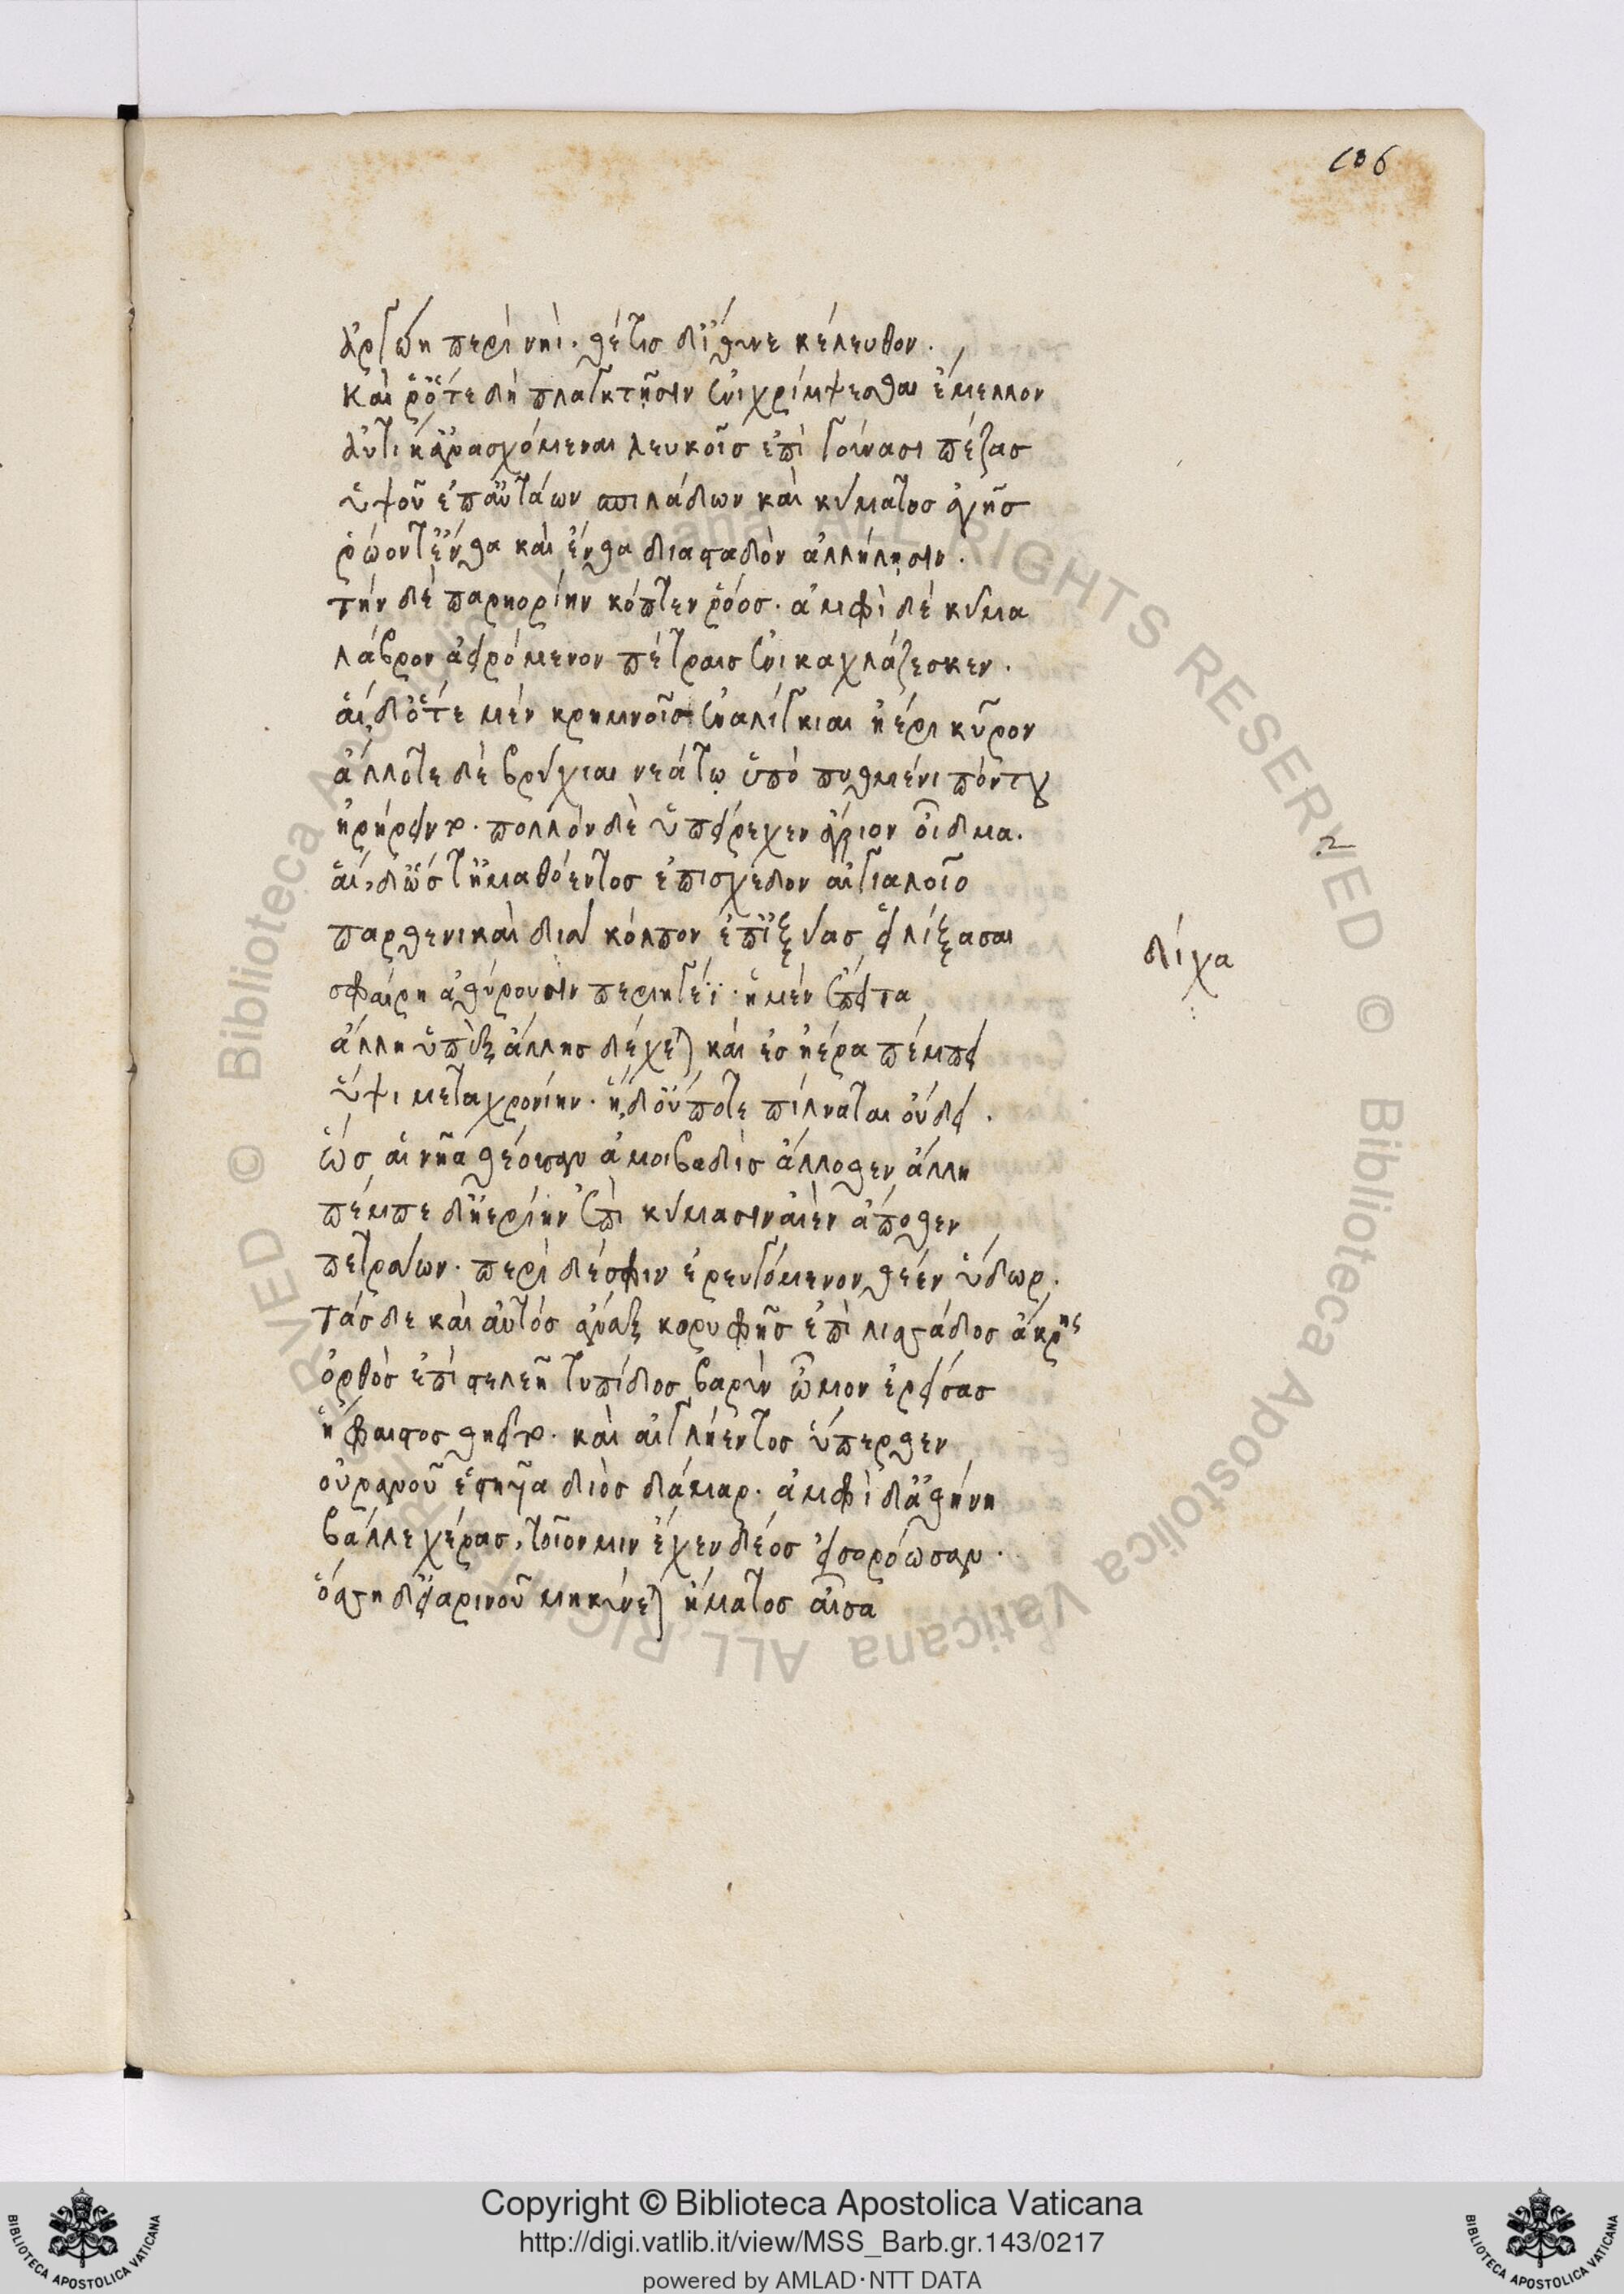 106
ἀργώη περὶ νηὶ. θέτις δἴθυνε κέλευθον.
καὶ ῥ̓ ὅτε δὴ πλαγκτῆσιν ἐνιχρίμψεσθαι ἔμελλον
αὐτίκ' ἀνασχόμεναι λευκοῖς ἐπὶ γούνασι πέζας
ὑψοῦ ἐπ' αὐτάων σπιλάδων καὶ κύματος ἀγῆς
ῥώοντ' ἔνθα καὶ ἔνθα διασταδὸν ἀλλήλησιν.
τὴν δὲ παρηορίην κόπτεν ῥόος. ἀμφὶ δὲ κῦμα
λάβρον ἀειρόμενον πέτραις ἐνικαχλάζεσκεν.
αἱ δ' ὅτε μὲν κρημνοῖς ἐναλίγκιαι ἠέρι κῦρον
ἄλλοτε δὲ βρύχιαι νεάτῳ ὑπὸ πυθμένι πόντου
ἠρήρειντο. πολλὸν δὲ ὑπείρεχεν ἄγριον οἶδμα.
αἱ, δ' ὥς τ' ἠμαθόεντος ἐπισχεδὸν αἰγιαλοῖο
παρθενικαὶ δίχα κόλπον ἐπ' ἰξύας εἱλίξασαι
δίχα
σφαίρη ἀθύρουσιν περιηγέϊ. ἡ μὲν ἔπειτα
ἄλλη ὑπ' ἐξ ἄλλης δέχεται καὶ ἐς ἠέρα πέμπει
ὕψι μεταχρονίην. ἡ δ' οὔποτε πίλναται οὔδει.
ὣς αἱ νῆα θέουσαν ἀμοιβαδὶς ἄλλοθεν ἄλλη
πέμπε διηερίην ἐπὶ κύμασιν αἰὲν ἄποθεν
πετράων. περὶ δέ σφιν ἐρευγόμενον θέεν ὕδωρ.
τὰς δὲ καὶ αὐτὸς ἄναξ κορυφῆς ἐπὶ λισσάδος ἄκρης
ὀρθὸς ἐπὶ στελεῆ τυπίδος βαρὺν ὦμον ἐρείσας
ἥφαιστος θηεῖτο. καὶ αἰγλήεντος ὕπερθεν
οὐρανοῦ ἑστηυῖα διὸς δάμαρ. ἀμφὶ δ' ἀθήνη
βάλλε χέρας, τοῖον μιν ἔχεν δέος εἰσορόωσαν.
ὅσση δ' εἰαρινοῦ μηκύνεται ἤματος αἶσα
Copyright © Biblioteca Apostolica Vaticana
http://digi.vatlib.it/view/MSS_Barb.gr.143/0217
powered by AMLAD·NTT DATA
BIBLIOTECA APOSTOLICA VATICANA
BIBLIOTECA APOSTOLICA VATICANA